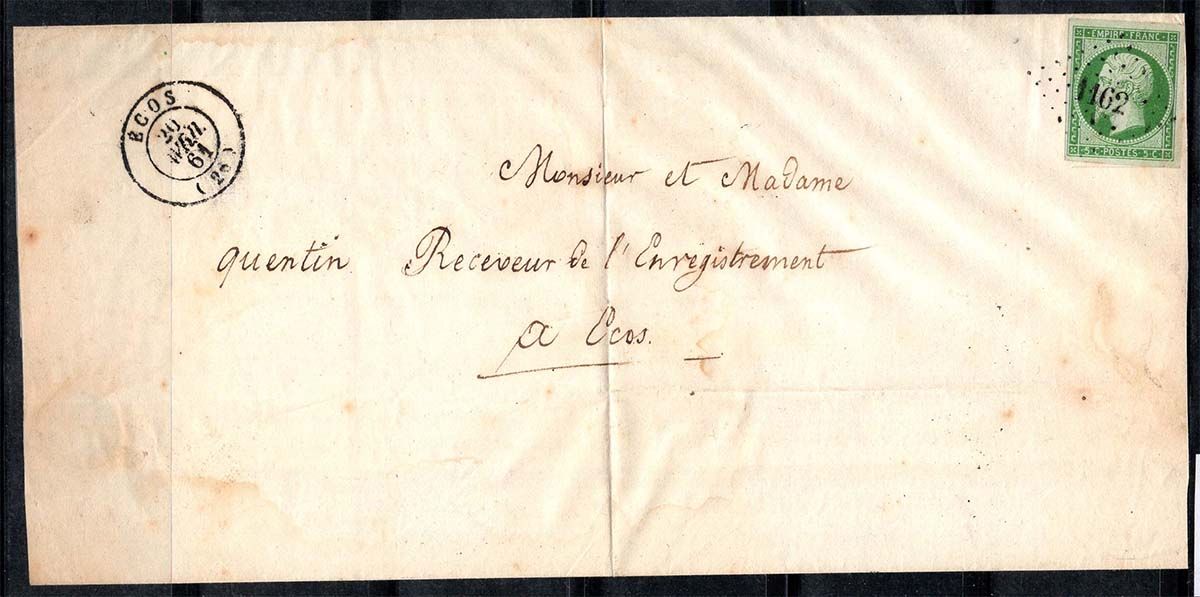 ECOS
20
AVRIL
61
(26)
EMPIRE FRANC
1162
5 C. POSTES 5 C.
Monsieur et Madame
quentin Receveur de l'Enregistrement
a Ecos.